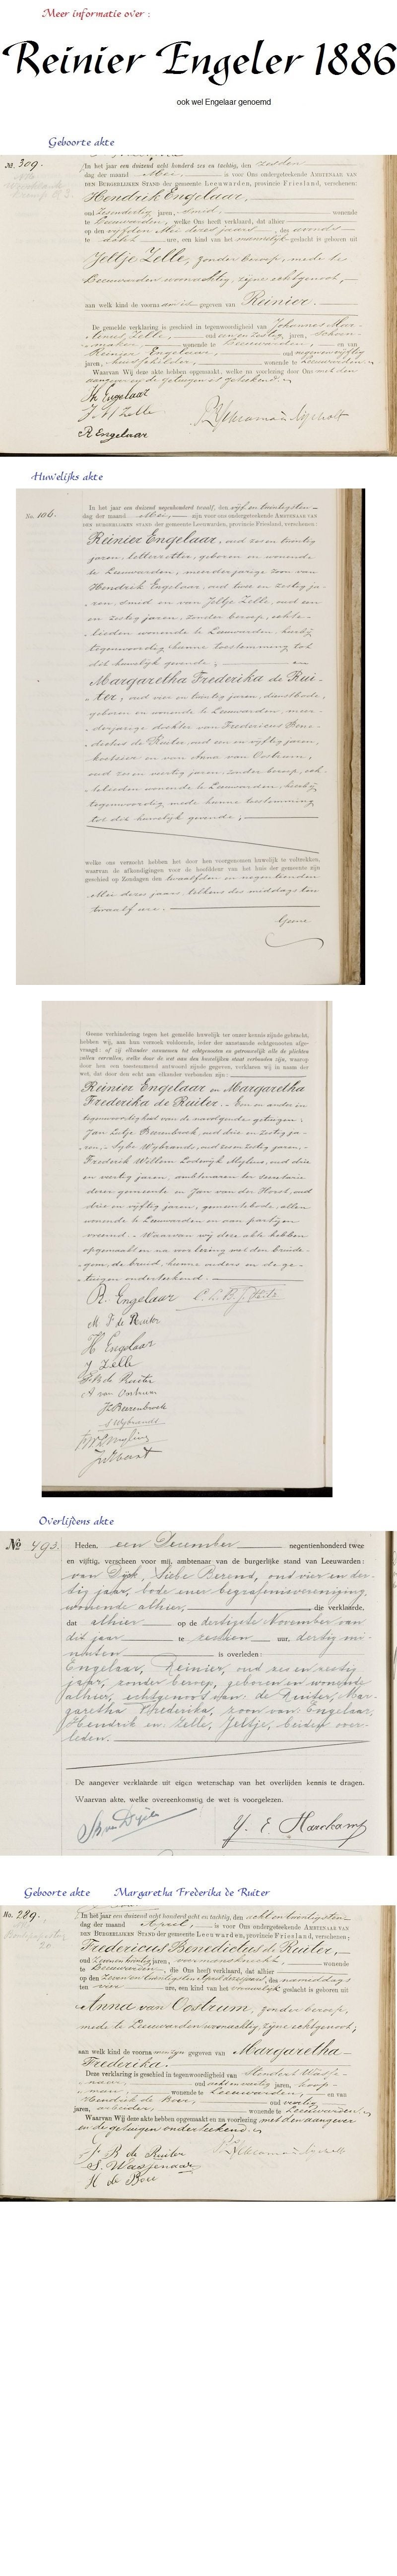 Meer informatie over :
Reinier Engeler 1886
ook wel Engelaar genoemd
Geboorte akte
No. 309.
In het jaar een duizend acht honderd zes en tachtig, den zesden
dag der maand Mei, is voor Ons ondergeteekende AMBTENAAR VAN
DEN BURGERLIJKEN STAND der gemeente Leeuwarden, provincie Friesland, verschenen:
Hendrik Engelaar,
oud jaren, smid, wonende
te Leeuwarden, welke Ons heeft verklaard, dat alhier
op den vijfden Mei dezes jaars, des avonds
te acht ure, een kind van het mannelijk geslacht is geboren uit
Jeltje Zelle, zonder beroep, mede te
Leeuwarden woonachtig, zijne echtgenoot,
aan welk kind de voornaam is gegeven van Reinier.
De gemelde verklaring is geschied in tegenwoordigheid van Johannes Mar-
Zelle, oud jaren, schoen-
maker, wonende te Leeuwarden, en van
Reinier Engelaar, oud negenenvijftig
jaren, wonende te Leeuwarden.
Waarvan Wij deze akte hebben opgemaakt, welke na voorlezing door Ons met den
aangever en de getuigen is geteekend.
H Engelaar
J. M Zelle
R Engelaar
Huwelijks akte
No. 106.
In het jaar een duizend negenhonderd twaalf, den vijf en twintigsten
dag der maand Mei, zijn voor ons ondergeteekende AMBTENAAR VAN
DEN BURGERLIJKEN STAND der gemeente Leeuwarden, provincie Friesland, verschenen:
Reinier Engelaar, oud zes en twintig
jaren, letterzetter, geboren en wonende
te Leeuwarden, meerderjarige zoon van
Hendrik Engelaar, oud twee en zestig ja-
ren, smid en van Jeltje Zelle, oud een
en zestig jaren, zonder beroep, echte-
lieden wonende te Leeuwarden, hierbij
tegenwoordig hunne toestemming tot
dit huwelijk gevende; en
Margaretha Frederika de Rui-
ter, oud vier en twintig jaren, dienstbode,
geboren en wonende te Leeuwarden, meer-
derjarige dochter van Fredericus Bene-
dictus de Ruiter, oud een en vijftig jaren,
koetsier en van Anna van Oostrum,
oud zes en veertig jaren, zonder beroep, ech-
telieden wonende te Leeuwarden, hierbij
tegenwoordig, mede hunne toestemming
tot dit huwelijk gevende;
welke ons verzocht hebben het door hen voorgenomen huwelijk te voltrekken,
waarvan de afkondigingen voor de hoofddeur van het huis der gemeente zijn
geschied op Zondagen den twaalfden en negentienden
Mei dezes jaars, telkens des middags ten
twaalf ure.
Geene
Geene verhindering tegen het gemelde huwelijk ter onzer kennis zijnde gebracht,
hebben wij, aan hun verzoek voldoende, ieder der aanstaande echtgenooten afge-
vraagd: of zij elkander aannemen tot echtgenooten en getrouwelijk alle de plichten
zullen vervullen, welke door de wet aan den huwelijken staat verbonden zijn, waarop
door hen een toestemmend antwoord zijnde gegeven, verklaren wij in naam der
wet, dat door den echt aan elkander verbonden zijn:
Reinier Engelaar en Margaretha
Frederika de Ruiter. Een en ander in
tegenwoordigheid van de navolgende getuigen:
Jan Zetje Beerenbrock, oud drie en zestig ja-
ren, Sybe Wybrands, oud zes en zestig jaren,
Frederik Willem Lodewijk Mylius, oud drie
en veertig jaren, ambtenaren ter secretarie
dezer gemeente en Jan van der Horst, oud
drie en vijftig jaren, gemeentebode, allen
wonende te Leeuwarden en aan partijen
vreemd. Waarvan wij deze akte hebben
opgemaakt en na voorlezing met den bruide-
gom, de bruid, hunne ouders en de ge-
tuigen onderteekend.
R. Engelaar
M F de Ruiter
H Engelaar
J Zelle
F.B de Ruiter
A van Oostrum
JzBeerenbrock
S Wybrands
FWLMylius
JvdHorst
Overlijdens akte
No 493.
Heden, een December negentienhonderd twee
en vijftig, verscheen voor mij, ambtenaar van de burgerlijke stand van Leeuwarden:
van Dijk, Siebe Berend, oud vier en der-
tig jaar, bode ener begrafenisvereniging,
wonende alhier, die verklaarde,
dat alhier op de dertigste November van
dit jaar te zestien uur, dertig mi-
nuten is overleden:
Engelaar, Reinier, oud zes en zestig
jaar, zonder beroep, geboren en wonende
alhier, echtgenoot van: de Ruiter, Mar-
garetha Frederika, zoon van: Engelaar,
Hendrik en Zelle, Jeltje, beiden over-
leden.
De aangever verklaarde uit eigen wetenschap van het overlijden kennis te dragen.
Waarvan akte, welke overeenkomstig de wet is voorgelezen.
SB van Dijk
Geboorte akte Margaretha Frederika de Ruiter
No. 289.
In het jaar een duizend acht honderd acht en tachtig, den acht en twintigsten
dag der maand April, is voor Ons ondergeteekende AMBTENAAR VAN
DEN BURGERLIJKEN STAND der gemeente Leeuwarden, provincie Friesland, verschenen:
Fredericus Benedictus de Ruiter,
oud zeven en twintig jaren, wonende
te Leeuwarden, die Ons heeft verklaard, dat alhier
op den zeven en twintigsten April dezes jaars, des namiddags
ten vier ure, een kind van het vrouwelijk geslacht is geboren uit
Anna van Oostrum, zonder beroep,
mede te Leeuwarden woonachtig, zijne echtgenoot,
aan welk kind de voornamen zijn gegeven van Margaretha
Frederika.
Deze verklaring is geschied in tegenwoordigheid van Wasse-
naar, oud acht en veertig jaren, koop-
man, wonende te Leeuwarden, en van
Hendrik de Boer, oud veertig
jaren, arbeider, wonende te Leeuwarden.
Waarvan Wij deze akte hebben opgemaakt en na voorlezing met den aangever
en de getuigen onderteekend.
F B de Ruiter
S. Wassenaar
H de Boer